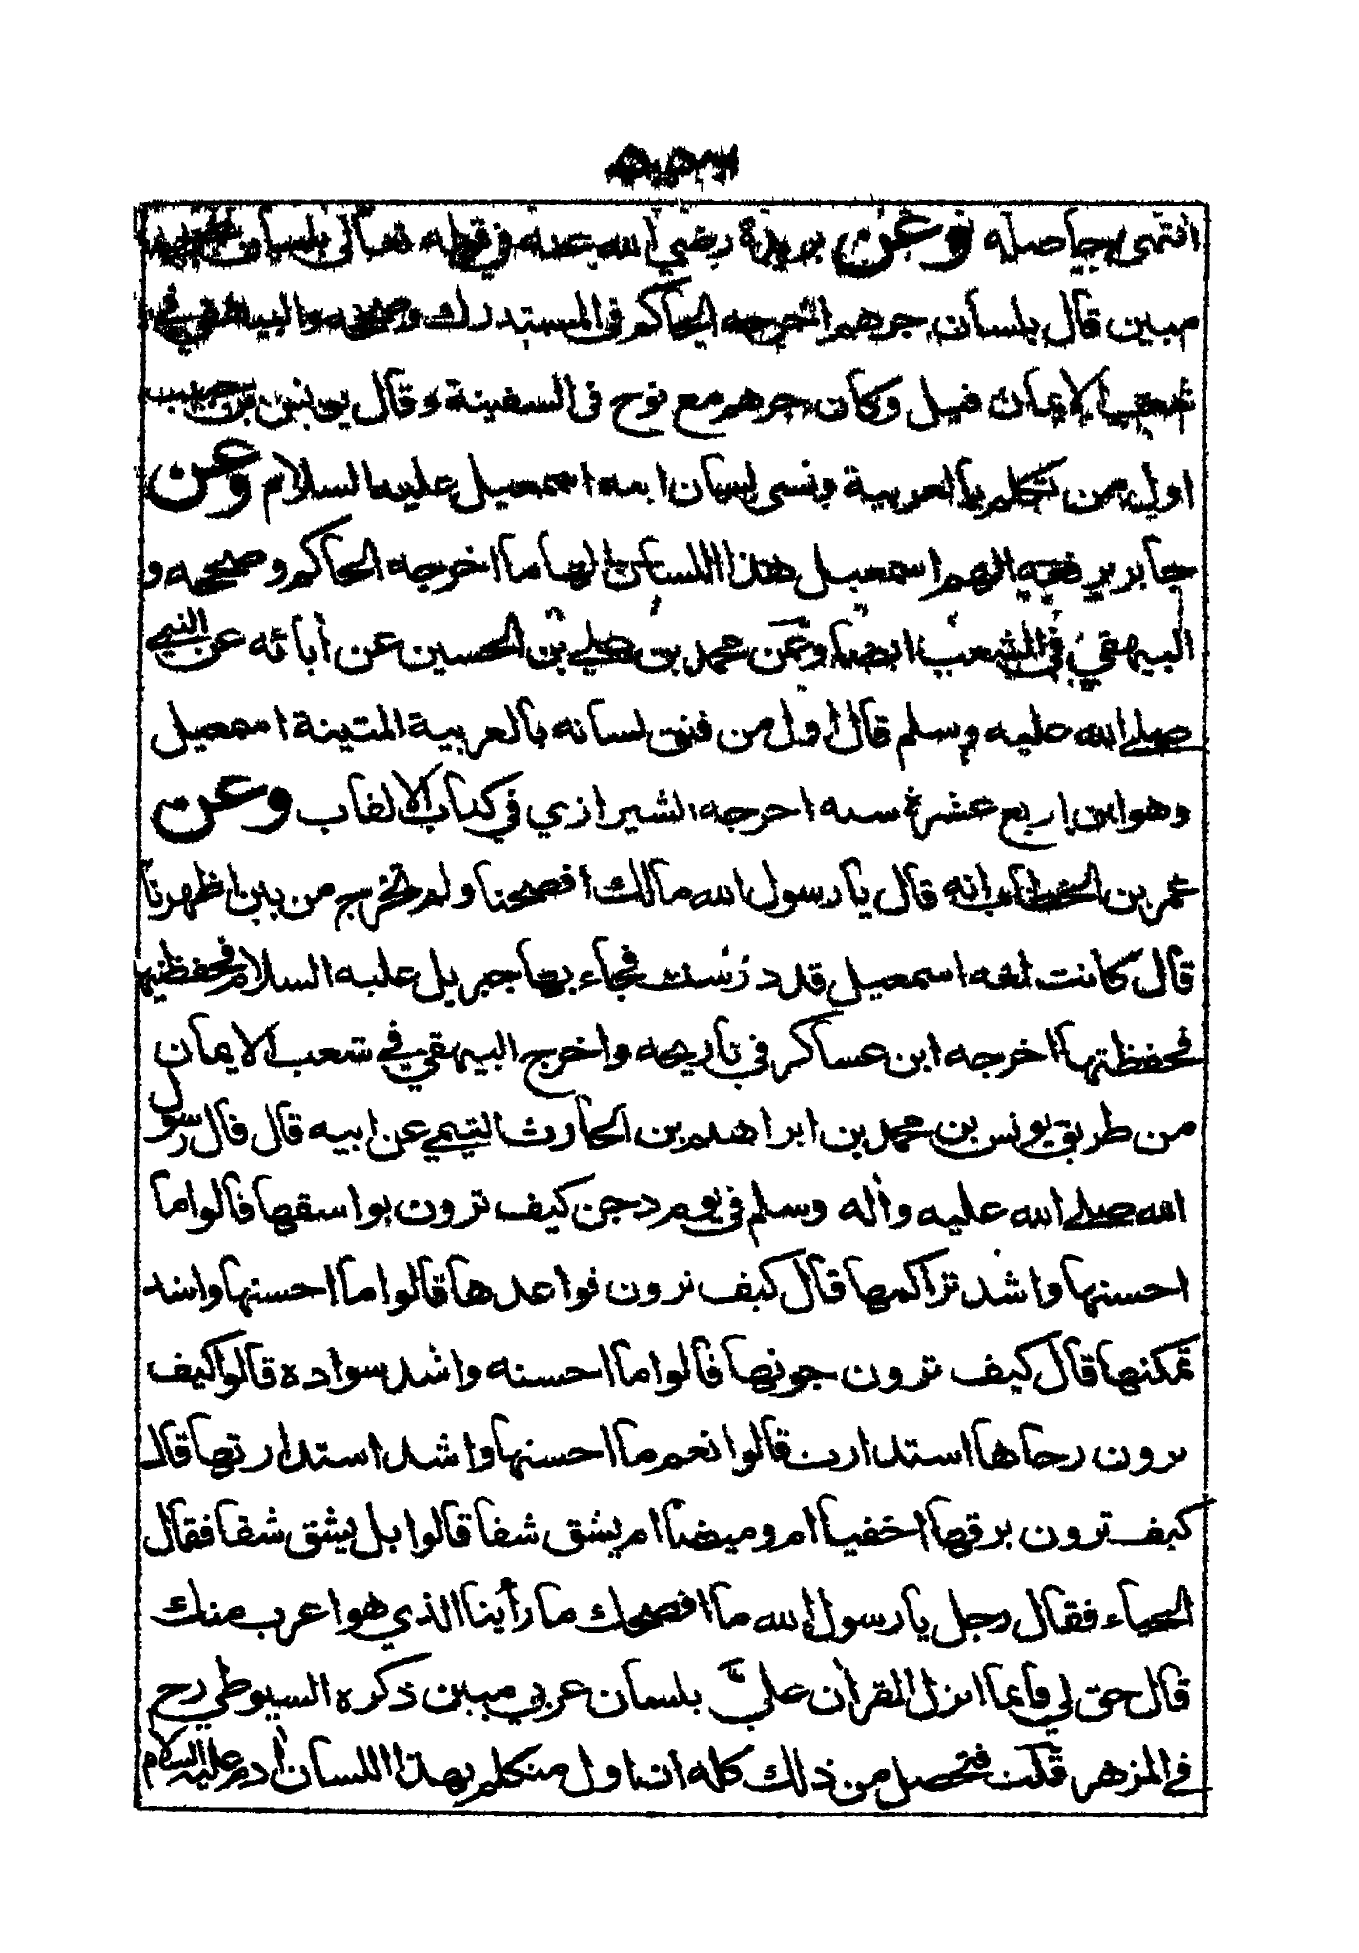 انتهى بحاصله وعن بريدة رضي الله عنه في قوله تعالى بلسان عربي
مبين قال بلسان جرهم اخرجه الحاكم في المستدرك وصححه والبيهقي في
شعب الايمان قيل وكان جرهم مع نوح في السفينة وقال يونس بن حبيب
اول من تكلم بالعربية ونسي لسان ابيه اسمعيل عليه السلام وعن
جابر يرفعه الهم اسمعيل هذا اللسان الهاما اخرجه الحاكم وصححه و
البيهقي في الشعب ايضا وعن محمد بن علي بن الحسين عن أبائه عن النبي
صلى الله عليه وسلم قال اول من فتق لسانه بالعربية المتينة اسمعيل
وهو ابن اربع عشرة سنه اخرجه الشيرازي في كتاب الالقاب وعن
عمر بن الخطاب انه قال يا رسول الله مالك أفصحنا ولم تخرج من بين اظهرنا
قال كانت لغه اسمعيل قد درست فجاء بها جبريل عليه السلام فحفظنيها
فحفظتها اخرجه ابن عساكر في تاريخه واخرج البيهقي في شعب الايمان
من طريق يونس بن محمد بن ابراهيم بن الحارث التيمي عن ابيه قال قال رسول
الله صلى الله عليه وأله وسلم في يوم دجن كيف ترون بواسقها قالوا ما
احسنها واشد تراكمها قال كيف ترون قواعدها قالوا ما احسنها واشد
تمكنها قال كيف ترون جونها قالوا ما احسنه واشد سواده قالوا كيف
ترون رحاها استدارت قالوا نعم ما احسنها واشد استدارتها قال
كيف ترون برقها اخفيا ام وميضا ام يشق شقا قالوا بل يشق شقا فقال
الحياء فقال رجل يا رسول الله ما افصحك ما رأينا الذي هو اعرب منك
قال حق لي فانما انزل القرأن عليّ بلسان عربي مبين ذكره السيوطي رح
في المزهر قلت فتحصل من ذلك كله ان اول متكلم بهذا اللسان أدم عليه السلام